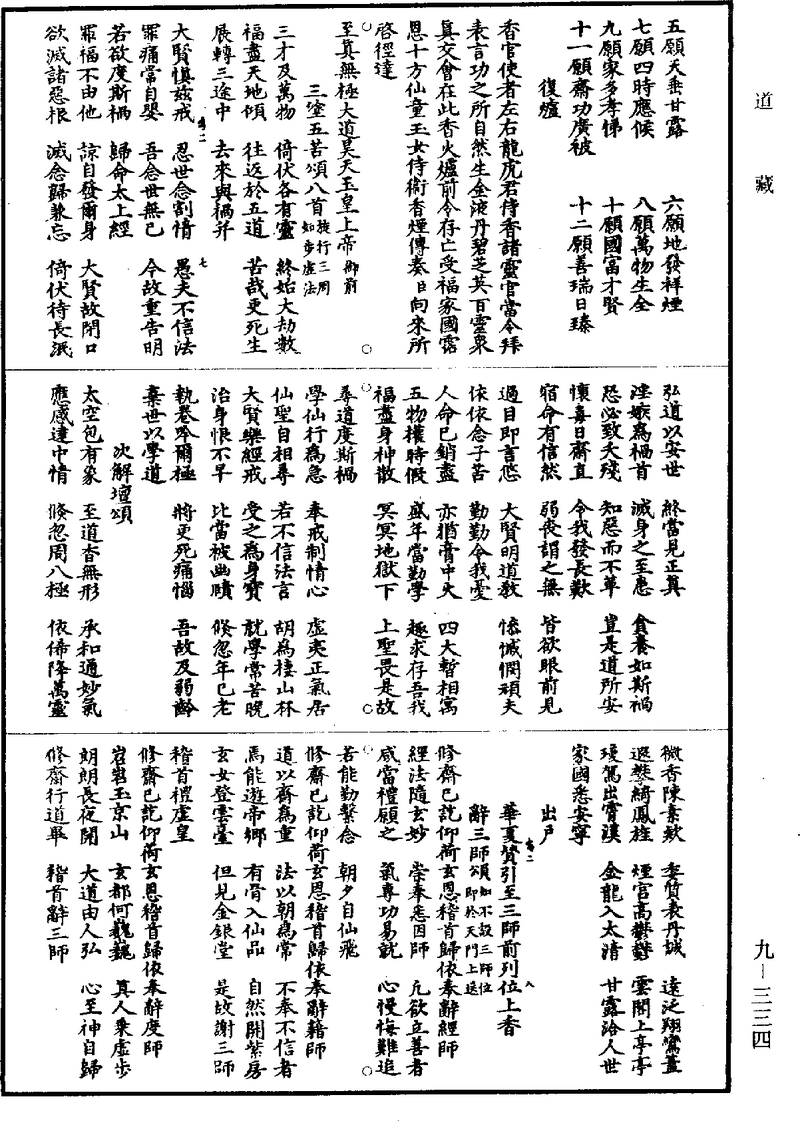 道藏
五願天垂甘露　六願地發祥煙
七願四時應候　八願萬物生全
九願家多孝悌　十願國富才賢
十一願齋功廣被　十二願善瑞日臻
復爐
香官使者左右龍虎君侍香諸靈官當令拜
表言功之所自然生金液丹碧芝英百靈衆
真交會在此香火爐前令存亡受福家國霑
恩十方仙童玉女侍衛香煙傳奏臣向來所
啓徑達
至真無極大道昊天玉皇上帝御前
三塗五苦頌八首旋行三周如步虛法
三才及萬物　倚伏各有靈　終始大劫數
福盡天地傾　往返於五道　苦哉更死生
展轉三途中　去來與禍并
大賢慎兹戒　忍世念割情　愚夫不信法
罪痛當自嬰　吾念世無已　今故重告明
若欲度斯禍　歸命太上經
罪福不由他　諒自發爾身　大賢故閉口
欲滅諸惡根　滅念歸兼忘　倚伏待長泯
弘道以安世　終當見正真
淫嫉為禍首　滅身之至患　貪養如斯禍
恐必致夭殘　知惡而不革　豈是道所安
懷毒日齋直　令我發長歎
宿命有信然　弱喪謂之無　皆欲眼前見
過目即言悠　大賢明道教　慘慽惘頑夫
依依念子苦　勤勤令我憂
人命已銷盡　亦猶膏中火　四大暫相寓
五物權時假　盛年當勤學　趣求存吾我
福盡身神散　冥冥地獄下　上聖畏是故
尋道度斯禍
學仙行為急　奉戒制情心　虛夷正氣居
仙聖自相尋　若不信法言　胡為棲山林
大賢樂經戒　受之為身寶　就學常苦晚
治身恨不早　比當被幽牘　倏忽年已老
執卷吟爾極　將更死痛惱　吾故及弱齡
棄世以學道
次解壇頌
太空包有象　至道杳無形　承和通妙氣
應感達中情　倏忽周八極　依俙降萬靈
微香陳素欵　季質表丹誠　遠泛翔鸞蓋
遐鬱綺鳳旌　煙宫高鬱鬱　雲閣上亭亭
瓊駕出霄漢　金龍入太清　甘露洽人世
家國悉安寧
出戶
華夏贊引至三師前列位上香
辭三師頌如不設三師位即於天門上送
修齋已訖仰荷玄恩稽首歸依奉辭經師
經法隨玄妙　崇奉悉因師　凡欲立善者
咸當禮願之　氣專功易就　心慢悔難追
若能勤繫念　朝夕自仙飛
修齋已訖仰荷玄恩稽首歸依奉辭籍師
道以齋為重　法以朝為常　不奉不信者
焉能遊帝鄉　有骨入仙品　自然開紫房
玄女登雲臺　但見金銀堂　是故謝三師
稽首禮虛皇
修齋已訖仰荷玄恩稽首歸依奉辭度師
岧岧玉京山　玄都何巍巍　真人乘虛步
朗朗長夜開　大道由人弘　心至神自歸
修齋行道畢　稽首辭三師
九－三三四